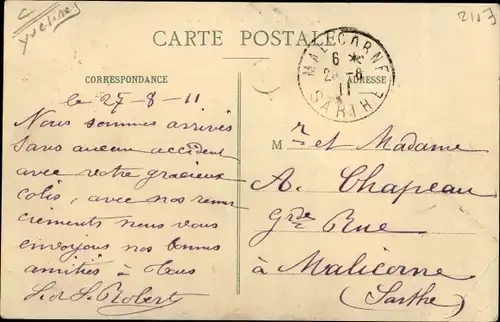 Yvelines
2113
CARTE POSTALE
MALICORNE
6 *
28 -8
11
SARTHE
CORRESPONDANCE
ADRESSE
le 27-8-11
Nous sommes arrivés
sans aucun accident
avec votre gracieux
colis, avec nos remer
ciements nous vous
envoyons nos bonnes
amitiés à tous
S. et S. Robert
Mr et Madame
A. Chapeau
Gde Rue
à Malicorne
(Sarthe)